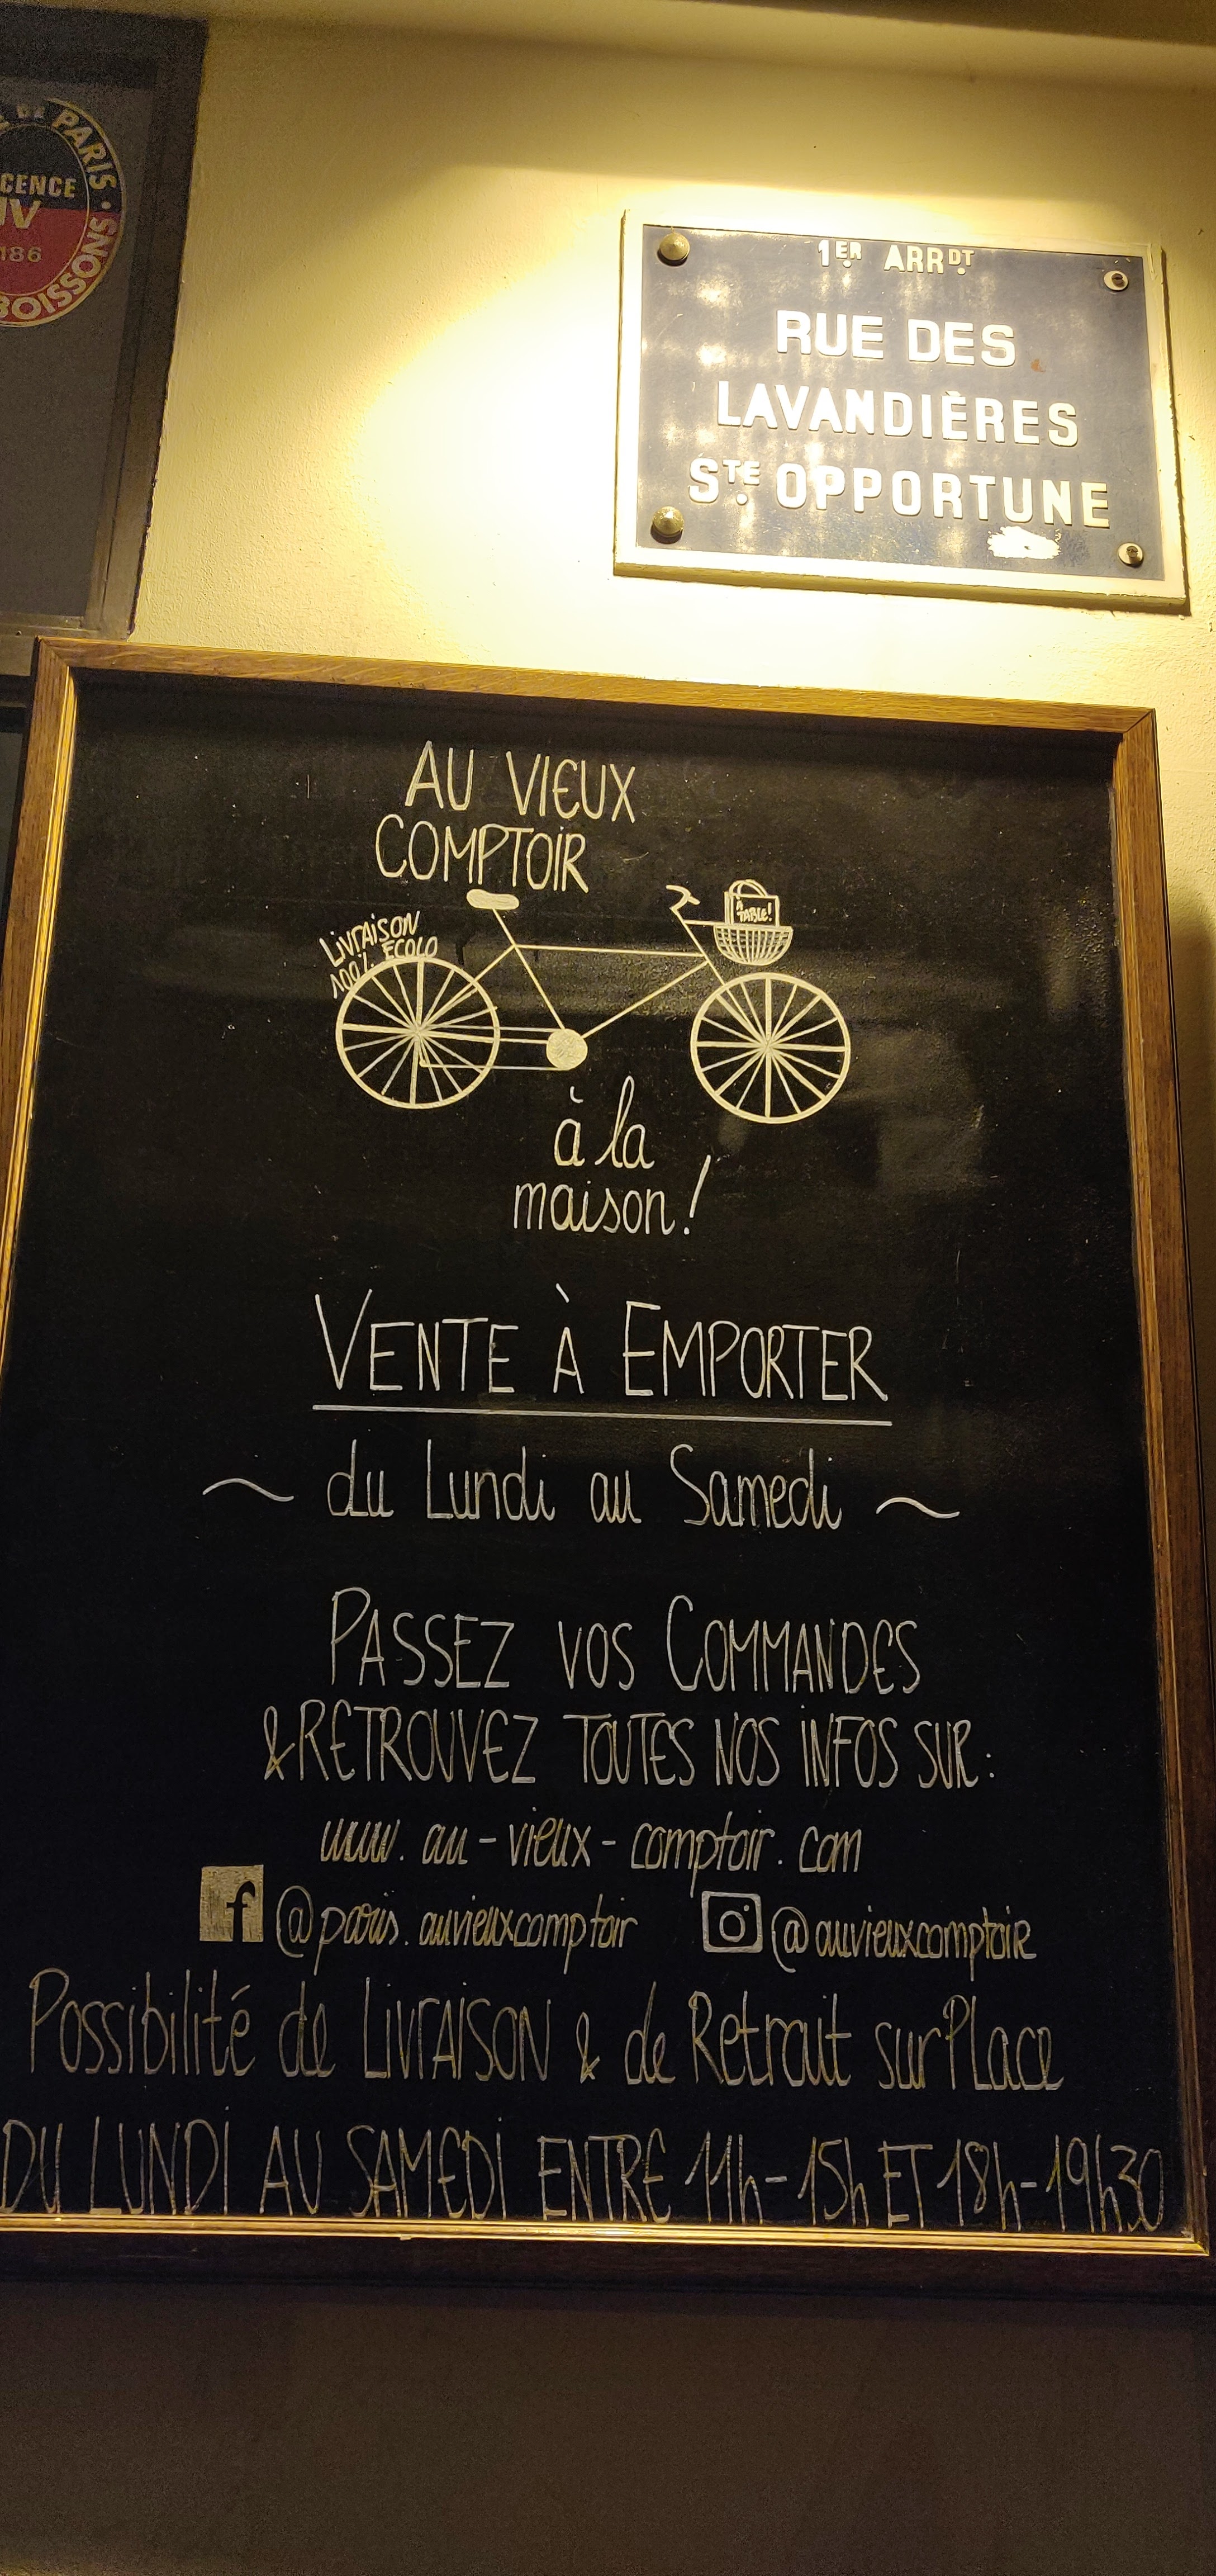 DE PARIS
CENCE
IV
186
BOISSONS
1ER ARRDT
RUE DES
LAVANDIÈRES
STE OPPORTUNE
AU VIEUX
COMPTOIR
LIVRAISON
100% ECOLO
À
TABLE!
à la
maison!
VENTE À EMPORTER
~ du Lundi au Samedi ~
PASSEZ VOS COMMANDES
& RETROUVEZ TOUTES NOS INFOS SUR:
www.au-vieux-comptoir.com
f @paris.auvieuxcomptoir @auvieuxcomptoir
Possibilité de LIVRAISON & de Retrait sur PLace
DU LUNDI AU SAMEDI ENTRE 11h-15h ET 18h-19h30